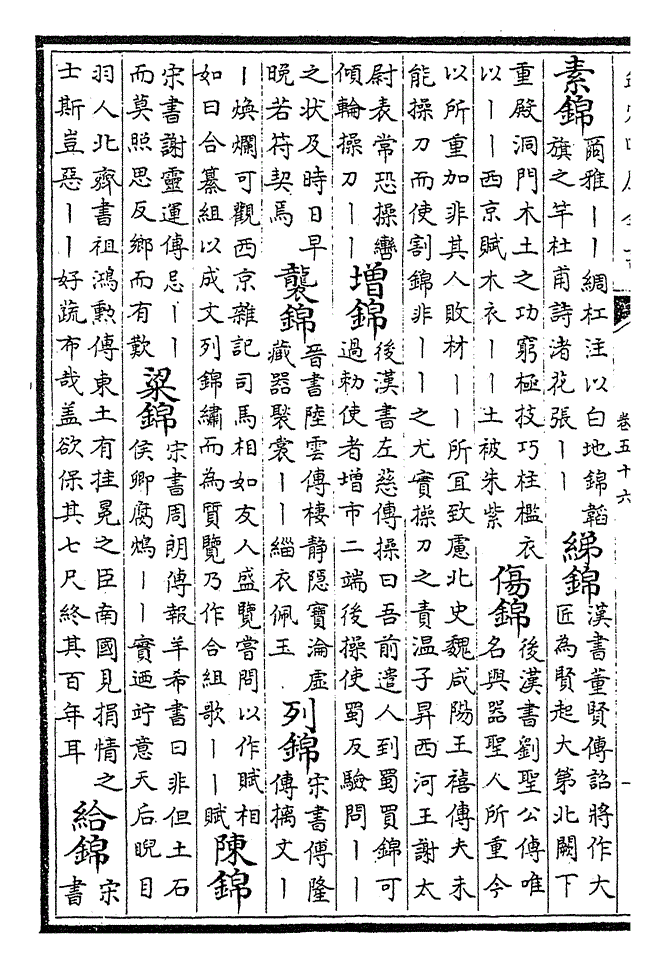 卷五十六
素錦
爾雅丨丨綢杠注以白地錦韜
旗之竿杜甫詩渚花張丨丨
綈錦
漢書董賢傳詔將作大
匠為賢起大第北闕下
重殿洞門木土之功窮極技巧柱檻衣
以丨丨西京賦木衣丨丨土被朱紫
傷錦
後漢書劉聖公傳唯
名與器聖人所重今
以所重加非其人敗材丨丨所宜致慮北史魏咸陽王禧傳夫未
能操刀而使割錦非丨丨之尤實操刀之責温子昇西河王謝太
尉表常恐操轡
傾輪操刀丨丨
增錦
後漢書左慈傳操曰吾前遣人到蜀買錦可
過勅使者增市二端後操使蜀反驗問丨丨
之状及時日早
晚若符契焉
襲錦
晉書陸雲傳棲静隠寶淪虚
藏器褧裳丨丨緇衣佩玉
列錦
宋書傅隆
傳摛文丨
丨煥爛可觀西京雜記司馬相如友人盛覽嘗問以作賦相
如曰合纂組以成文列錦繡而為質覽乃作合組歌丨丨賦
陳錦
宋書謝靈運傳忌丨丨
而莫照思反鄉而有歎
粱錦
宋書周朗傳報羊希書曰非但土石
侯卿腐鴆丨丨實迺竚意天后睨目
羽人北齊書祖鴻勲傳東土有挂冕之臣南國見捐情之
士斯豈惡丨丨好疏布哉盖欲保其七尺終其百年耳
給錦
宋
書